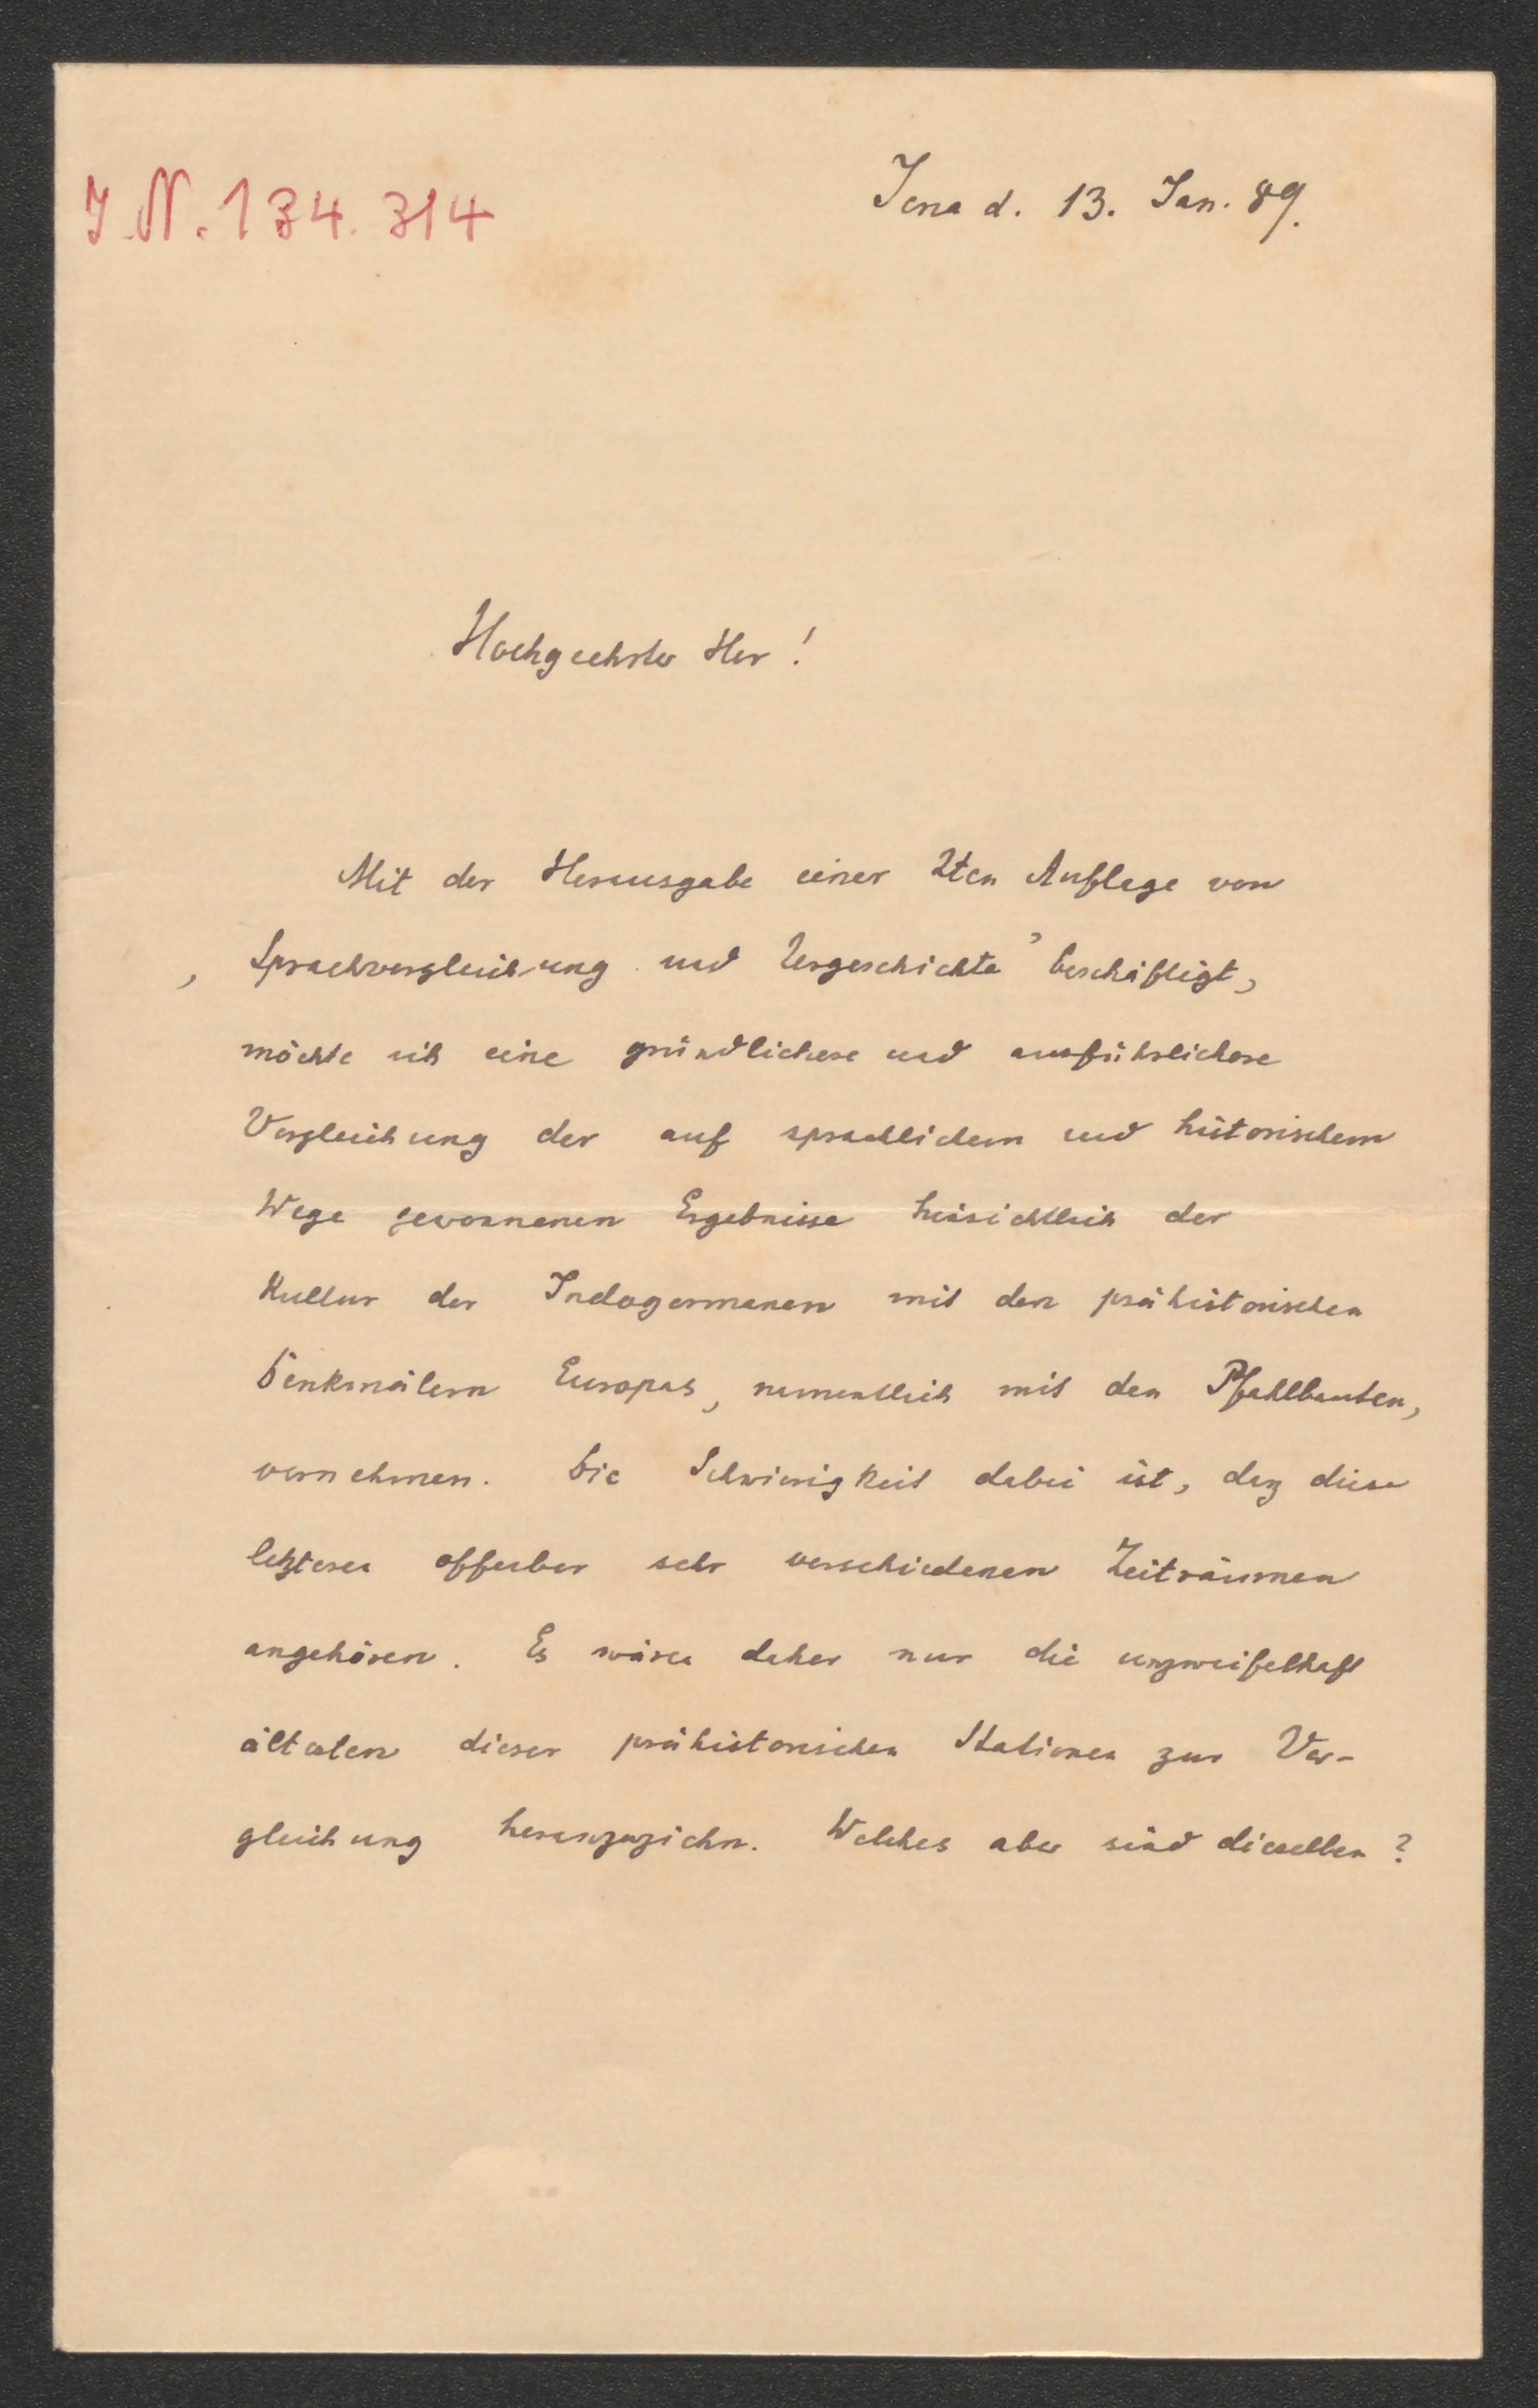 I.N. 134.314
Jena d. 13. Jan. 89.
Hochgeehrter Herr!
Mit der Herausgabe einer 2ten Auflage von
, Sprachvergleichung und Urgeschichte ’ beschäftigt,
möchte ich eine gründlichere und ausführlichere
Vergleichung der auf sprachlichem und historischem
Wege gewonnenen Ergebnisse hinsichtlich der
Kultur der Indogermanen mit den prähistorischen
Denkmälern Europas, namentlich mit den Pfahlbauten,
vornehmen. Die Schwierigkeit dabei ist, daz diese
letzteren offenbar sehr verschiedenen Zeiträumen
angehören. Es wären daher nur die unzweifelhaft
ältesten dieser prähistorischen Stationen zur Ver-
gleichung heranzuziehn. Welches aber sind dieselben?